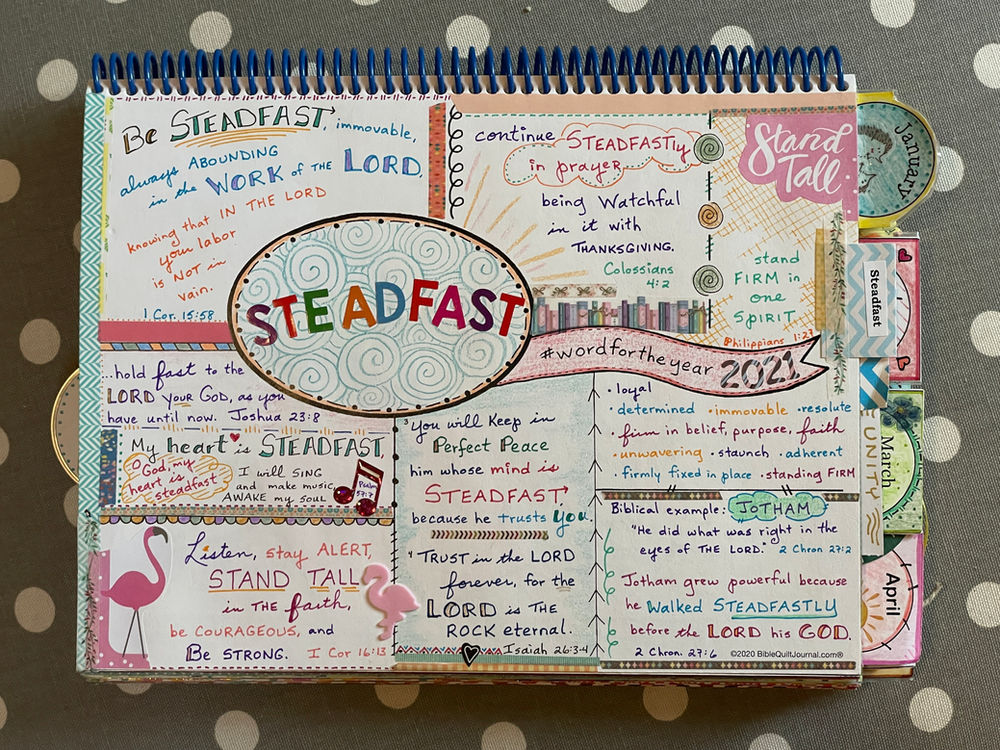 Be STEADFAST, immovable,
always ABOUNDING
in the WORK of THE LORD,
knowing that IN THE LORD
your labor
is NOT in
vain.
1 Cor. 15:58
continue STEADFASTly
in prayer
being Watchful
in it with
THANKSGIVING.
Colossians
4:2
Stand
Tall
stand
FIRM in
one
SpiRiT
Philippians 1:27
STEADFAST
#wordfortheyear 2021
...hold fast to the
LORD your GOD, as you
have until now. Joshua 23:8
My heart is STEADFAST,
O God, my
heart is
steadfast
I will SING
and make music,
AWAKE my soul.
Psalm
57:7
Listen, stay ALERT,
STAND TALL
in THE faith,
be COURAGEOUS, and
Be STRONG. I Cor 16:13
3 You will Keep in
Perfect Peace
him whose mind is
STEADFAST
because he trusts You.
4 TRUST in the LORD
forever, for the
LORD is THE
ROCK eternal.
Isaiah 26:3-4
• loyal
• determined • immovable • resolute
• firm in belief, purpose, faith
• unwavering • staunch • adherent
• firmly fixed in place • standing FIRM
Biblical example: JOTHAM
"He did what was right in the
eyes of THE LORD." 2 Chron 27:2
Jotham grew powerful because
he Walked STEADFASTLY
before the LORD his GOD.
2 Chron. 27:6
©2020 BibleQuiltJournal.com®
January
Steadfast
March
UNITY
April